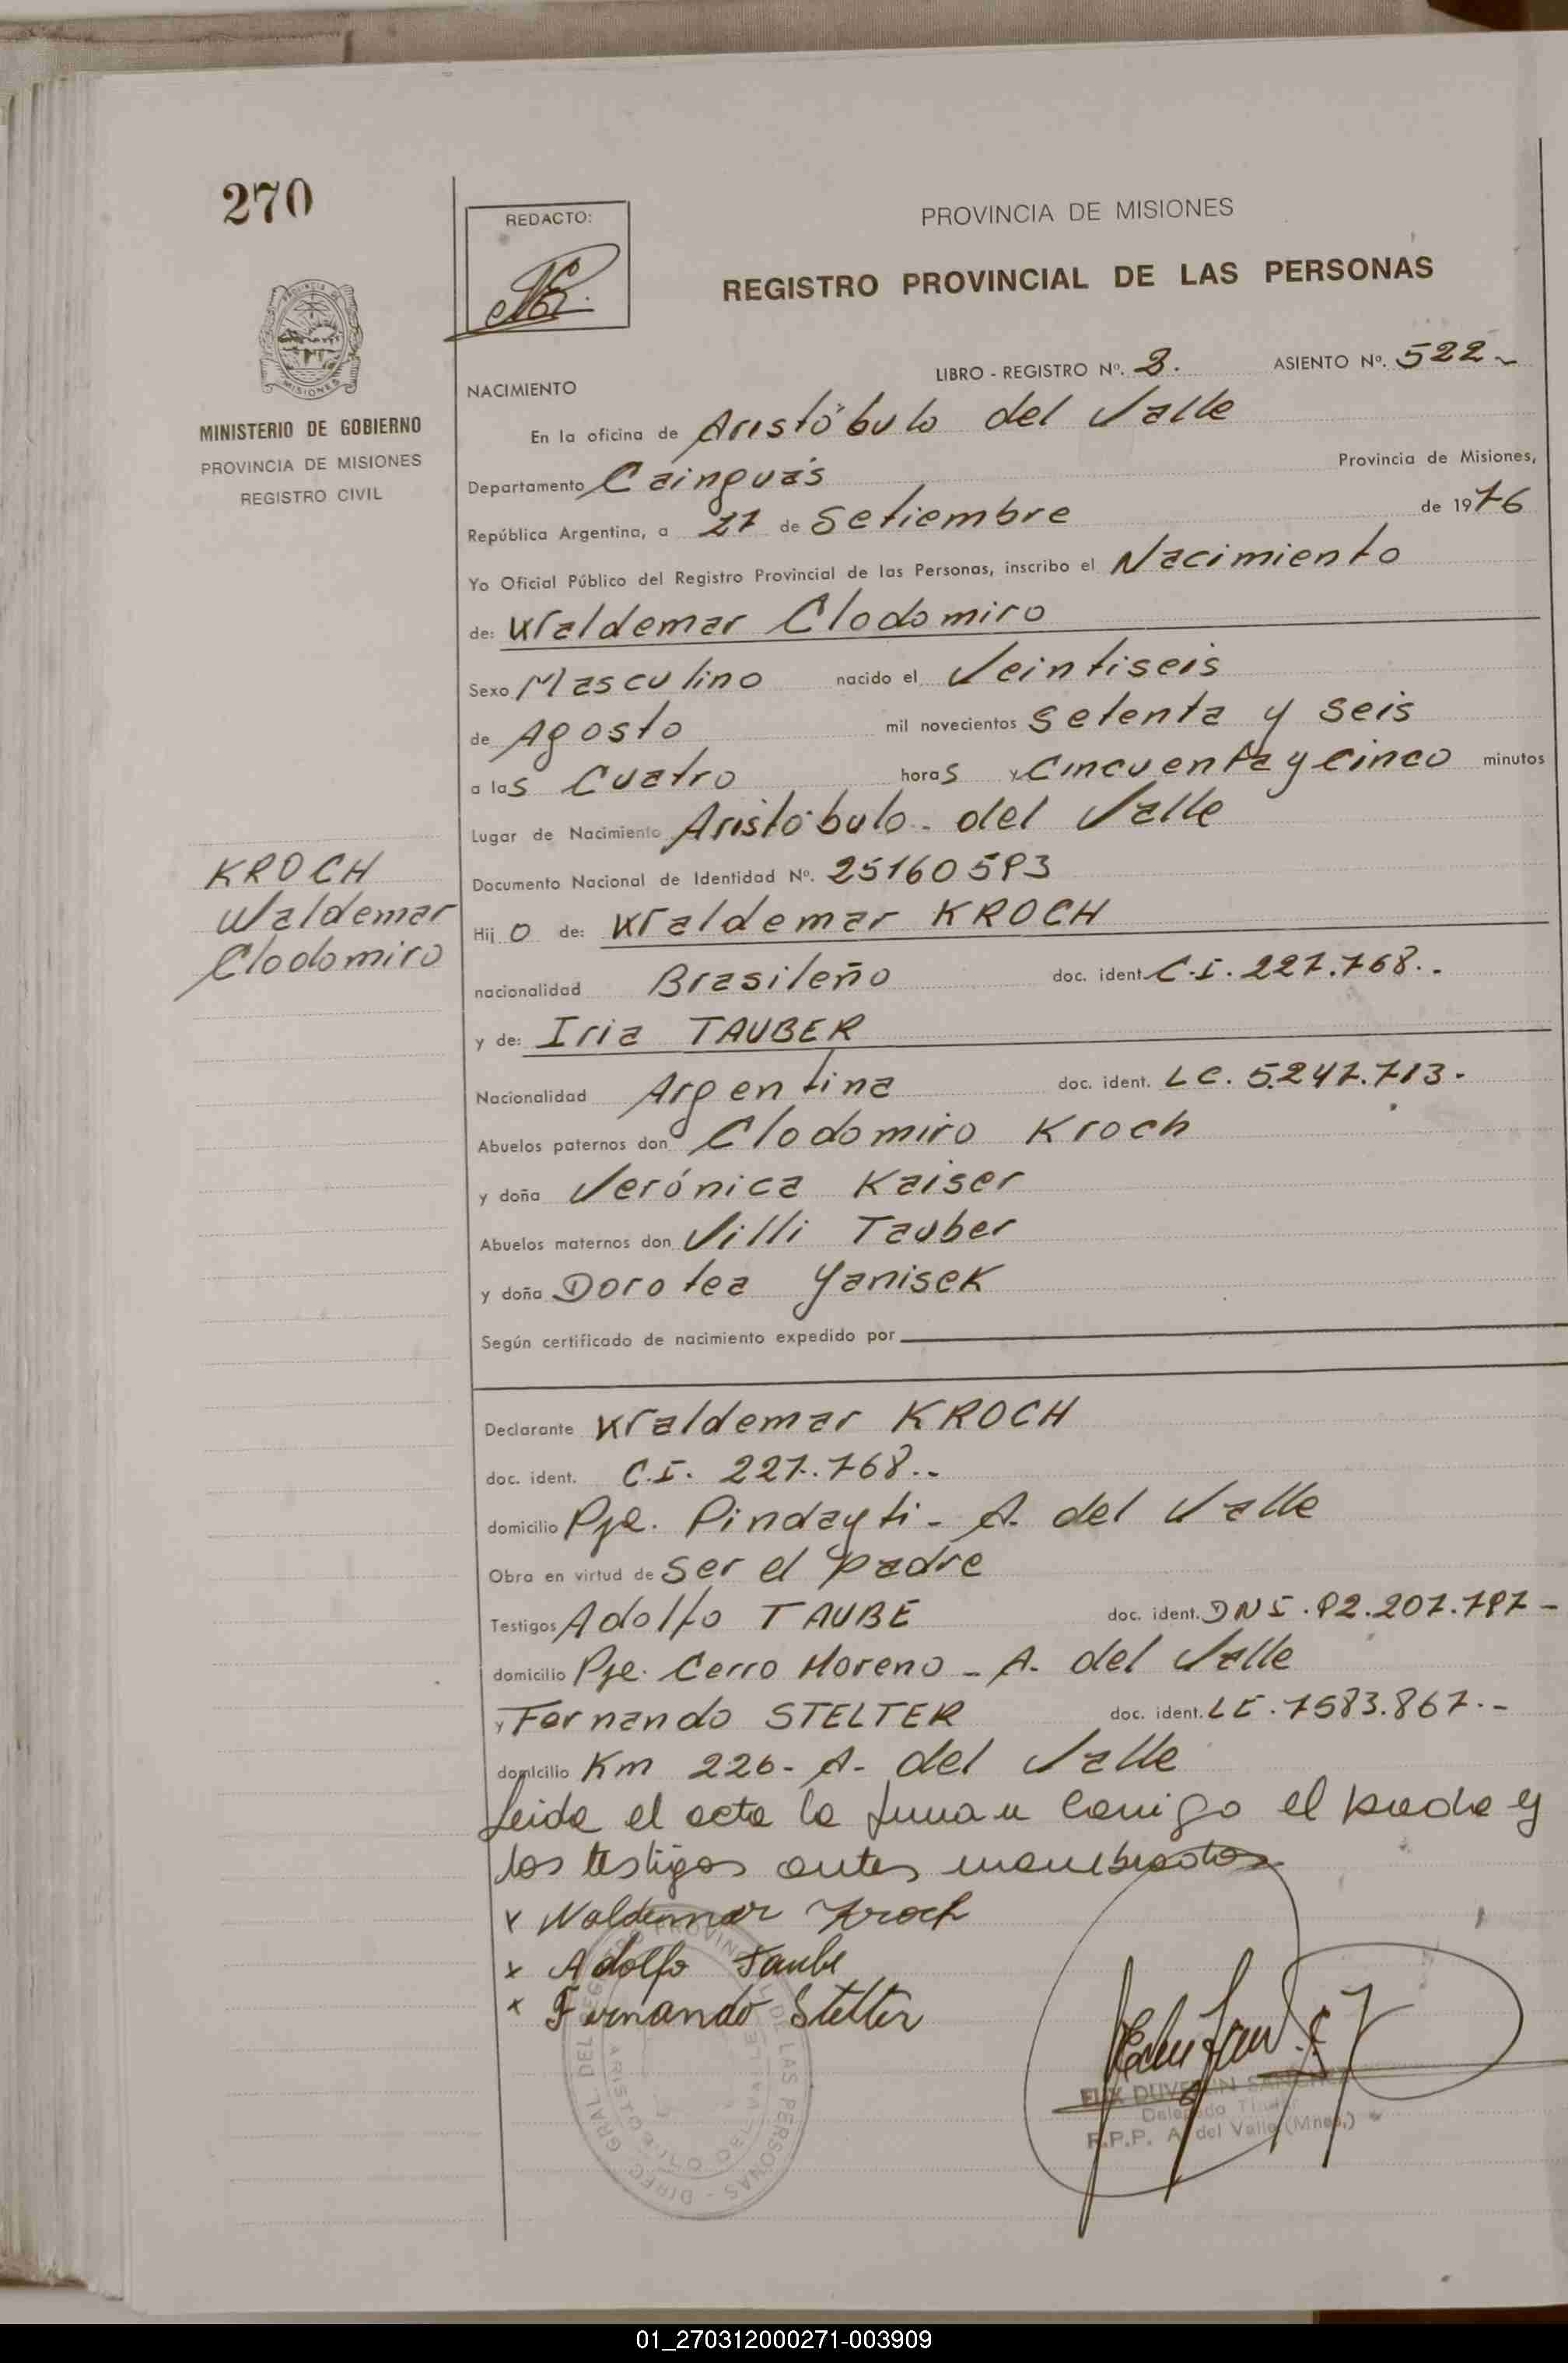 270
REDACTO:
PROVINCIA DE MISIONES
REGISTRO PROVINCIAL DE LAS PERSONAS
MINISTERIO DE GOBIERNO
PROVINCIA DE MISIONES
REGISTRO CIVIL
NACIMIENTO
LIBRO - REGISTRO Nº. 3. ASIENTO Nº. 522
En la oficina de Aristóbulo del Valle
Departamento Cainguás Provincia de Misiones,
República Argentina, a 27 de Setiembre de 1976
Yo Oficial Público del Registro Provincial de las Personas, inscribo el Nacimiento
de: Waldemar Clodomiro
Sexo Masculino nacido el Veintiseis
de Agosto mil novecientos setenta y seis
a las Cuatro horas y Cincuenta y cinco minutos
Lugar de Nacimiento Aristóbulo del Valle
KROCH
Waldemar
Clodomiro
Documento Nacional de Identidad Nº. 25160593
Hijo de: Waldemar KROCH
nacionalidad Brasileño doc. ident. C.I. 227.768..
y de: Iria TAUBER
Nacionalidad Argentina doc. ident. LC. 5.247.713.
Abuelos paternos don Clodomiro Kroch
y doña Verónica Kaiser
Abuelos maternos don Villi Tauber
y doña Dorotea Yanisek
Según certificado de nacimiento expedido por
Declarante Waldemar KROCH
doc. ident. C.I. 227.768..
domicilio Pje. Pindayti - A. del Valle
Obra en virtud de ser el padre
Testigos Adolfo TAUBE doc. ident. DNI. 92.207.797-
domicilio Pje. Cerro Moreno - A. del Valle
y Fernando STELTER doc. ident. LE. 7583.867.-
domicilio Km 226- A- del Valle
Leida el acta la firman conmigo el padre y
los testigos antes nombrados
x Waldemar Kroch
x Adolfo Taube
x Fernando Stelter
DIREC. GRAL DEL REGISTRO PROVINCIAL DE LAS PERSONAS
ARISTOBULO DEL VALLE
Delegado Titular
R.P.P. A. del Valle (Mnes.)
01_270312000271-003909